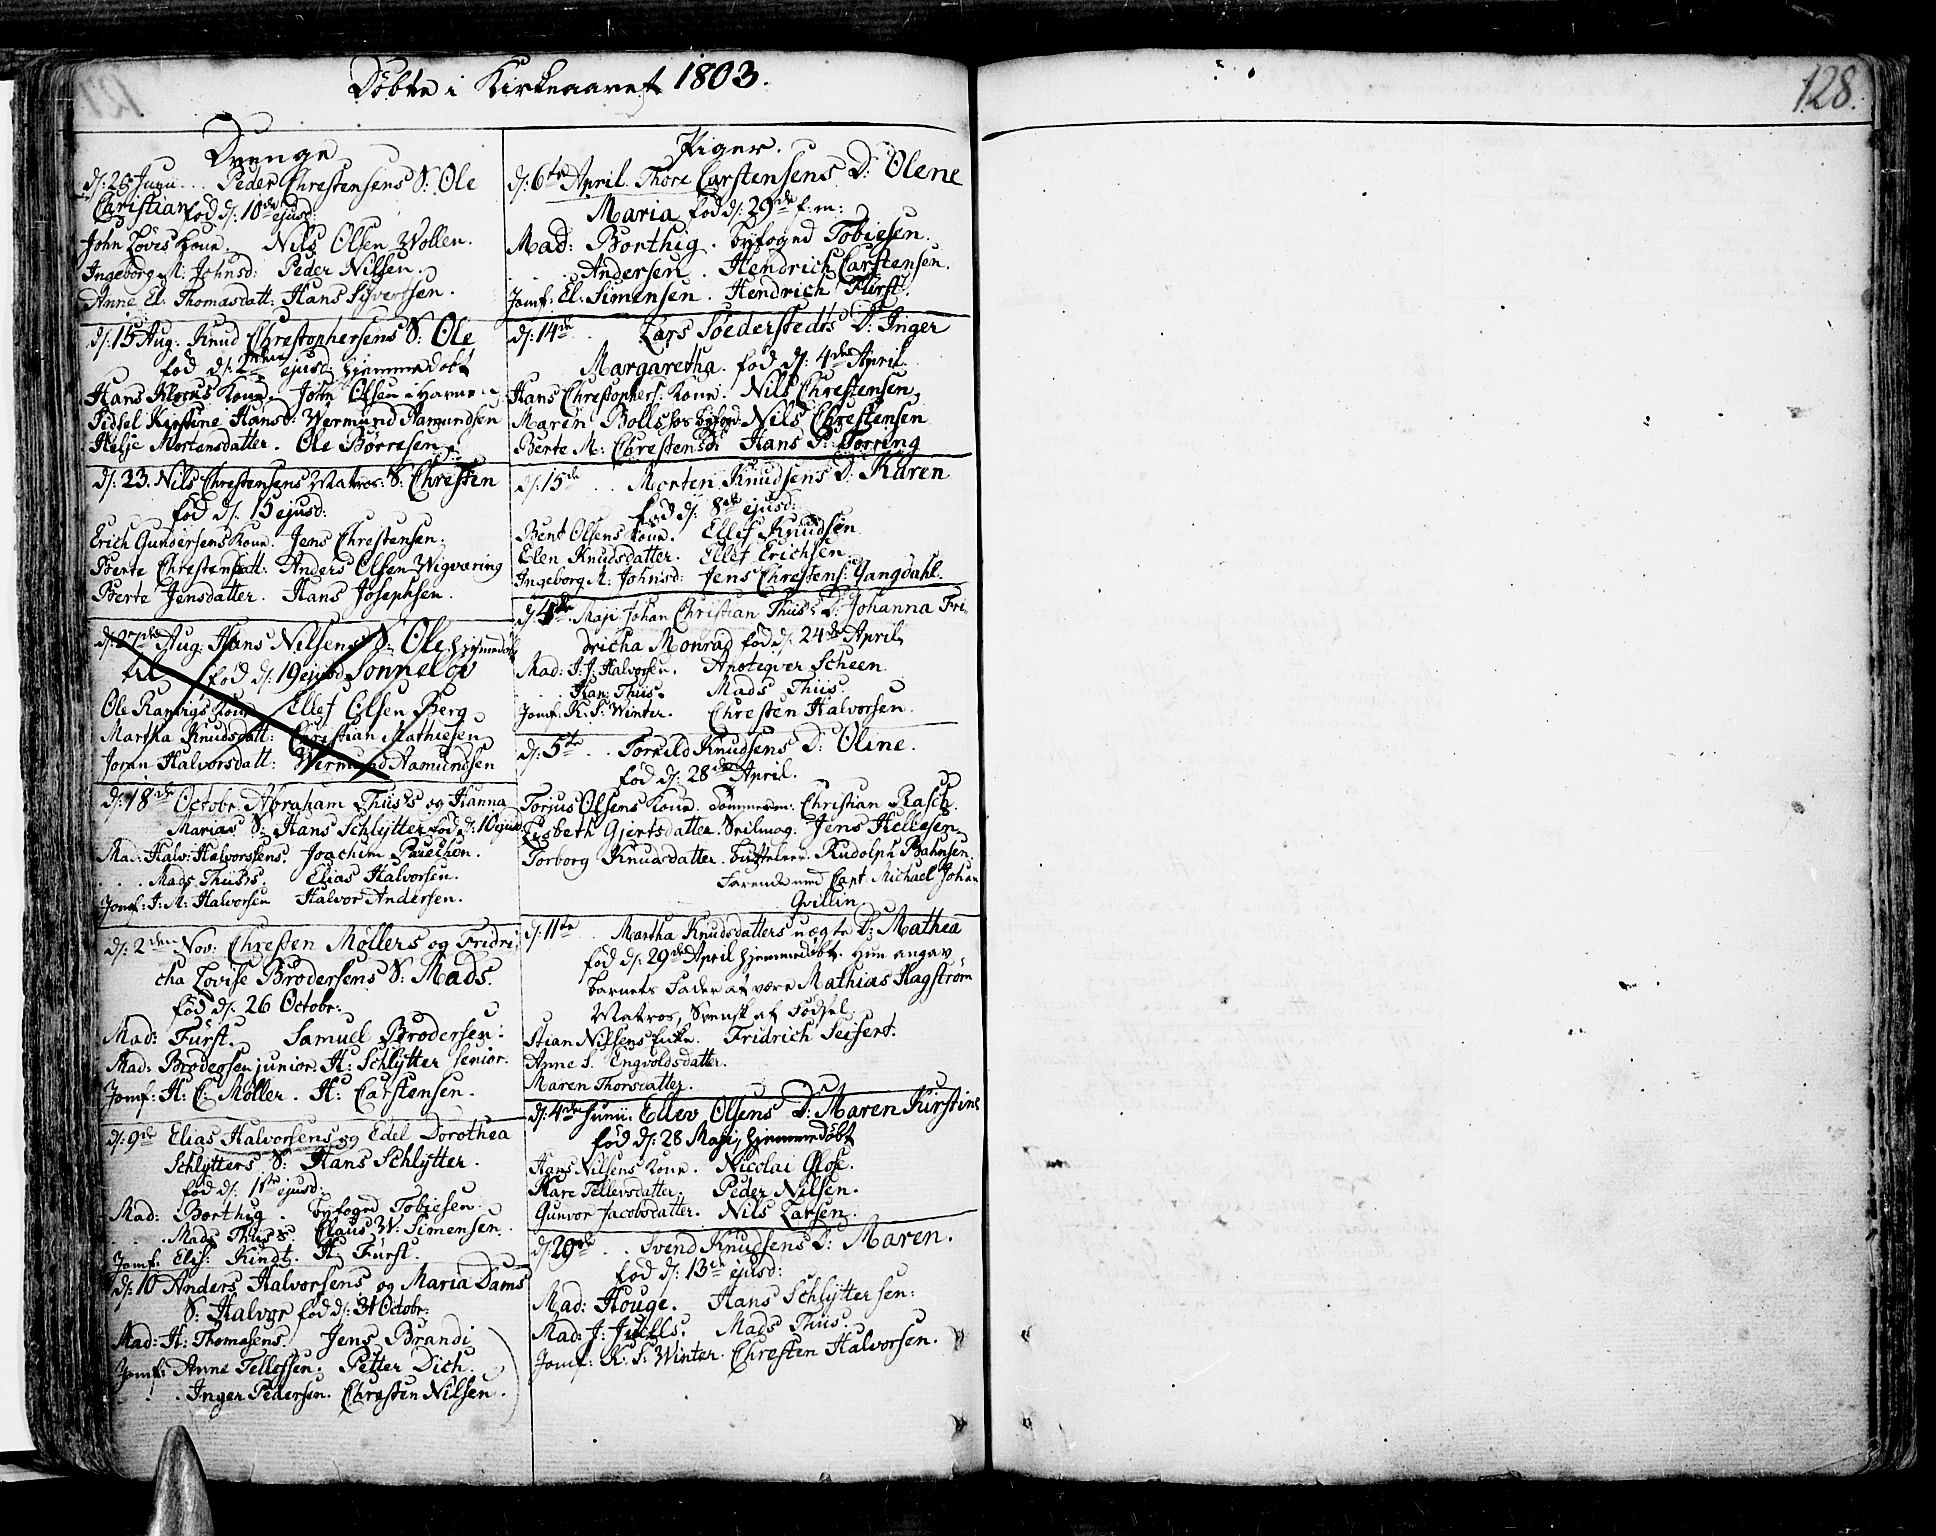 Döbte i Kirkeaaret 1803.
128.
Drenge
d. 26 Junii... Peder Chrestensens S: Ole
Christian föd d: 10de ejusd:
John Löves Kone. Nils Olsen Wollen.
Ingeborg M: Johnsd: Peder Nilsen.
Anne El. Thomasdatt: Hans Syvertsen.
d: 15 Aug. Knud Chrestophersens S: Ole
föd d: 2den ejusd: hjemmedöbt
Hans Klocks Kone. John Olsen i Havnen
Sidsel Kirstine Hansd: Wermund Aamundsen
Helje Mortensdatter. Ole Börresen
d: 23. Nils Chrestensens Matros: S: Chresten
föd d: 15 ejusd:
Erich Gundersens Kone. Jens Chrestensen.
Berte Chrestensdatt: Anders Olsen Wigværing
Berte Jensdatter. Hans Josephsen.
d: 27de Aug: Hans Nilsens S: Ole hjemmedöbt
föd d: 19 ejusd Sonnelov
Ole Ranvigs Kone Ellef Olsen Berg
Martha Knudsdatt: Christian Mathiesen
Joran Halvorsdatt: Wermund Aamundsen
d: 18de Octobr. Abraham Thiis's og Hanna
Marias S: Hans Schlytter föd d: 10 ejusd
Mad: Halv: Halvorsens. Joachim
. . . Mads Thiis's. Elias Halvorsen.
Jomf: I: M: Halvorsen Halvor Andersen.
d: 2den Nov: Chresten Möllers og Fridri
cha Lovise Brodersens S: Mads.
föd d: 26 Octobr:
Mad: Fürst. Samuel Brodersen:
Mad: Brodersen junior. H: Schlytter senior.
Jomf: H: C: Möller. H: Carstensen.
d: 9de Elias Halvorsens og Edel Dorothea
Schlytters S: Hans Schlytter.
föd d: 1ste ejusd:
Mad: Borthig. byfoged Tobiesen.
. . . Mads Thiis's. Claus W: Simensen.
Jomf: Elis: Kindt. H: Fürst.
d: 10 Anders Halvorsens og Maria Dams
S: Halvor föd d: 31 Octobr:
Mad: H: Thomasens. Jens Brandi
Jomf: Anne Tellefsen. Petter Dich.
. . . Inger Pedersen. Chresten Nilsen.
Piger.
d: 6te April. Thore Carstensens D: Olene
Maria föd d: 29de f: m:
Mad: Borthig. byfoged Tobiesen.
. . . Andersen. Hendrich Carstensen.
Jomf: El: Simensen. Hendrich Fürst.
d: 14de Lars Soederstedts D: Inger
Margaretha. föd d: 4de April.
Hans Chrestophers: Kone. Nils Chrestensen
Maren Bolls hos byfogd: Nils Chrestensen
Berte M: Chrestensd: Hans P: Torring
d: 15de .. Morten Knudsens D: Karen
föd d: 8de ejusd:
Bent Olsens Kone. Ellef Knudsen
Elen Knudsdatter. Ellef Erichsen
Ingeborg M: Johnsd: Jens Chrestens: Gangdahl.
d: 4de Maji Johan Christian Thiis's D: Johanna Fri
dricha Monrad föd d: 24de April
Mad: J. J. Halvorsen. Apoteqver Scheen
. . . Han: Thiis. Mads Thiis
Jomf: K: S: Winter. Chresten Halvorsen.
d: 5te .. Torkild Knudsens D: Oline.
föd d: 28de April.
Torjus Olsens Kone. Tömmerm: Christian Rasch.
Lisbeth Gjertsdatter. Seilmag. Jens Hellesen
Torborg Knudsdatter. Rudolph Bahnsen.
Farende med Capt Michael Johan
Qvillin.
d: 11te .. Martha Knudsdatters uægte D: Mathea
föd d: 29de April hjemmedöbt. Hun angav
barnets Fader at være Mathias Hagström
Matros, Svensk af Födsel.
Stian Nilsens Enke. Fridrich Seifert:
Anne S. Engvoldsdatter.
Maren Thorsdatter.
d: 4de Junii. Ellev Olsens D: Maren Kirstine
föd d: 28 Maji, hjemmedöbt
Hans Nilsens Kone. Nicolai Glose.
Kare Tellevsdatter. Peder Nilsen.
Gunvor Jacobsdatter. Nils Larsen.
d: 29de .. Svend Knudsens D: Maren.
föd d: 13de ejusd:
Mad: Houge. Hans Schlytter sen:
Mad: J: Juells. Mads Thiis.
Jomf: K: S: Winter. Chresten Halvorsen.